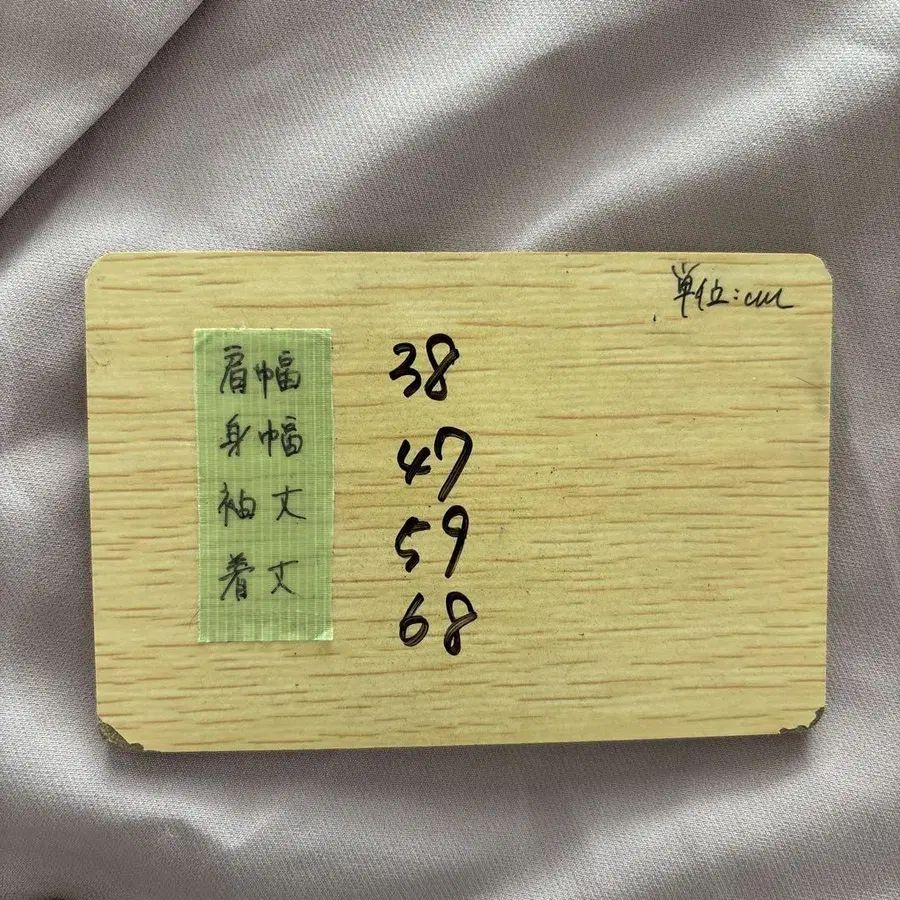 単位:cm
肩幅 38
身幅 47
袖丈 59
着丈 68